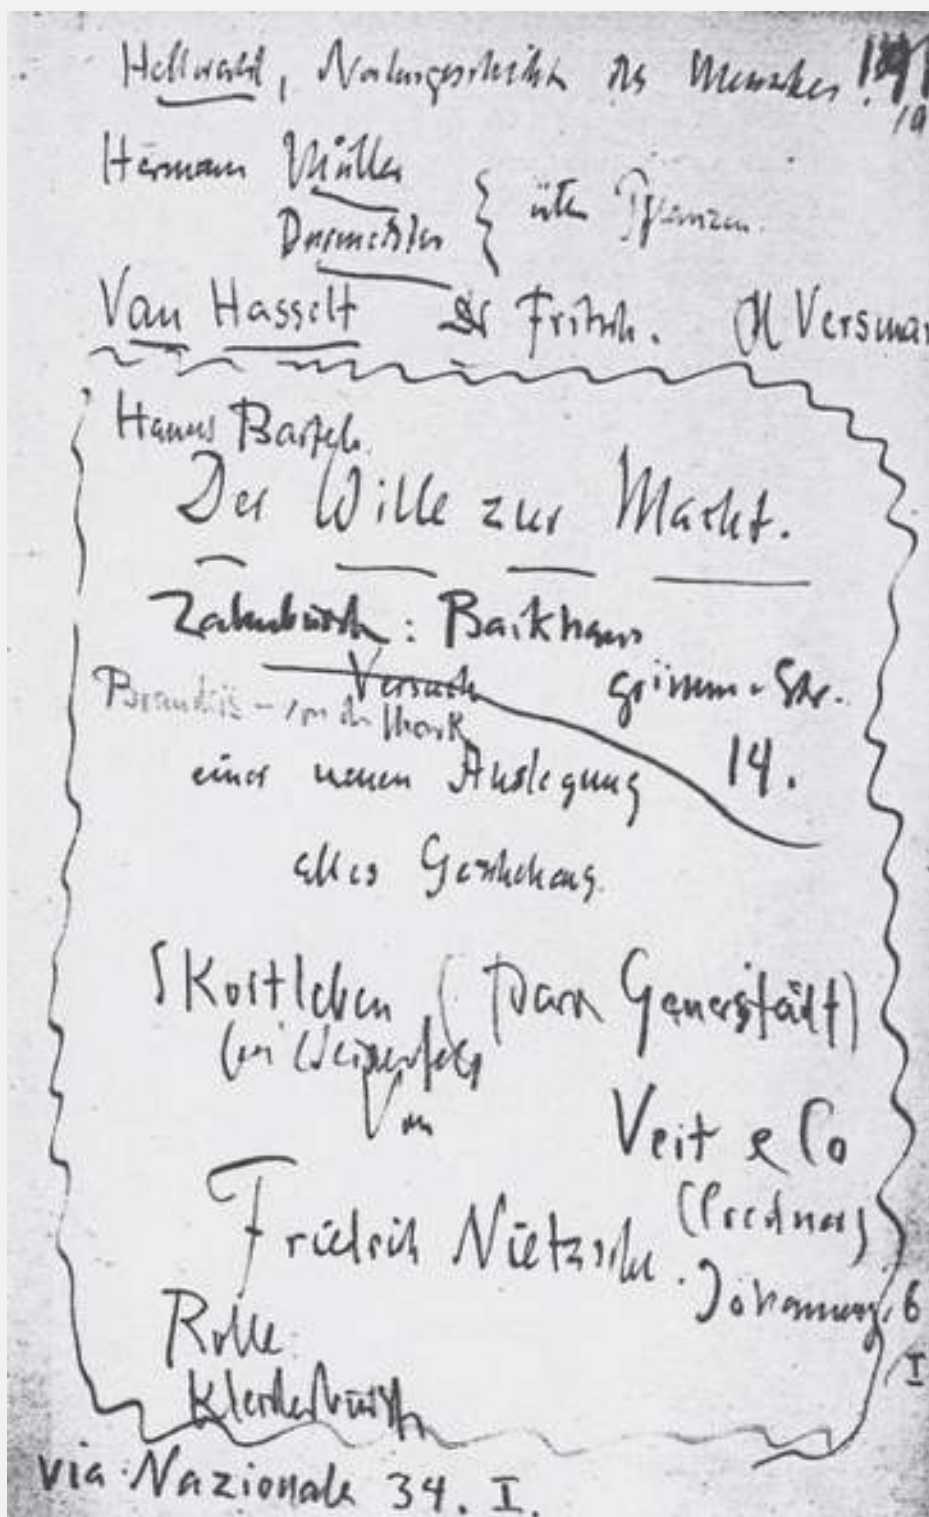 Hellwald, Naturgeschichte des Menschen.
Hermann Müller
über Pflanzen.
Van Hasselt Dr Fritsch. H Versman
Hanns Bartels.
Der Wille zur Macht.
Zahnbürste: Backhaus
Versuch Grimm-Str.
14.
einer neuen Auslegung
alles Geschehens
Skortleben (Dara Generstädt)
bei Weißenfels
Von
Veit & Co
(Credner)
Friedrich Nietzsche.
Johannesg. 6
I
Rolle
Kleiderbürste
via Nazionale 34. I.